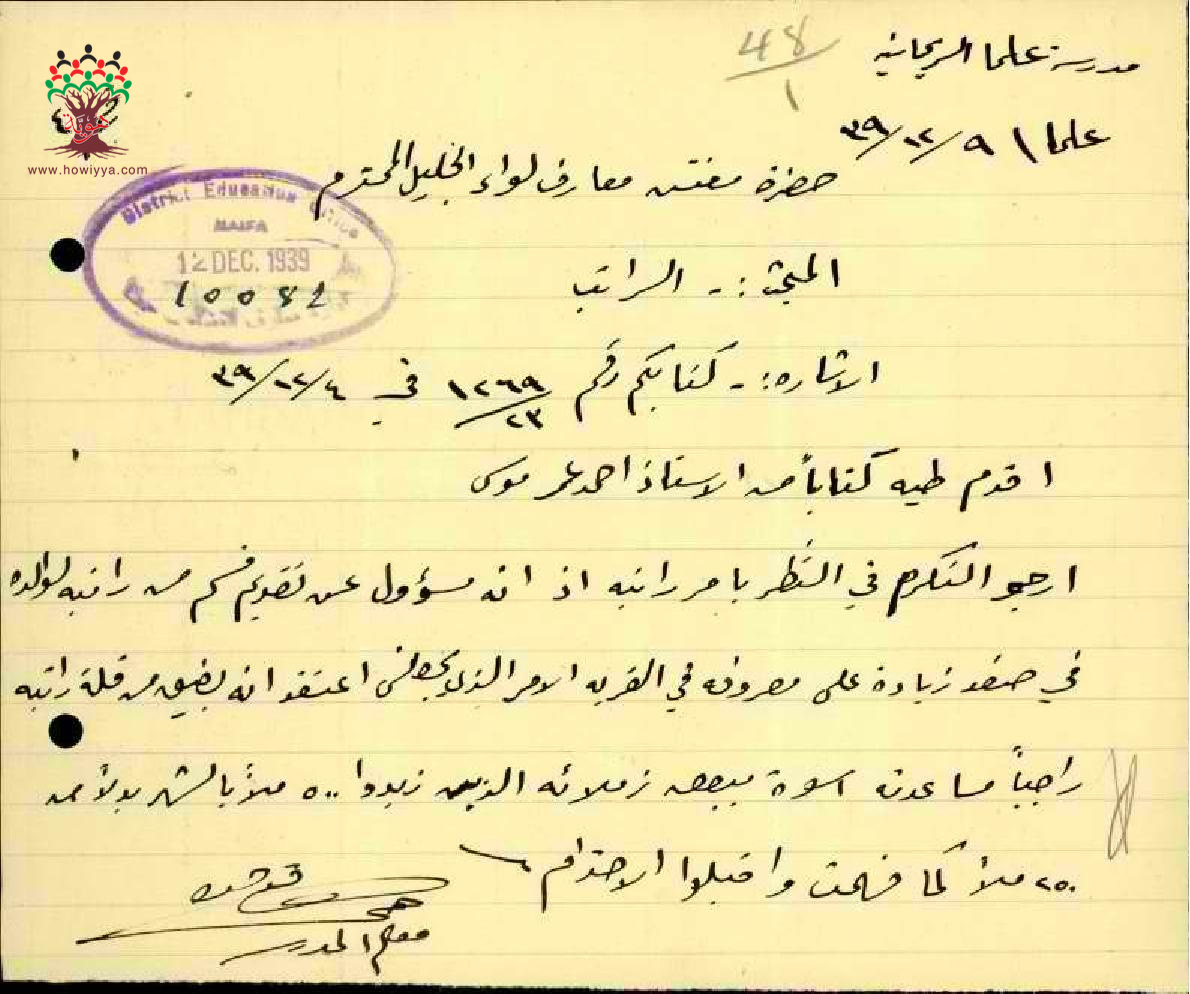 مدرسة علما الريحانية
48/1
علما \ ٩/١٢/٣٩
حضرة مفتش معارف لواء الجليل المحترم
هوية
www.howiyya.com
District Education Office
HAIFA
12 DEC. 1939
10082
المبحث :- الراتب
الاشاره :- كتابكم رقم ١٢٦٩/٢٣ في ٤/١٢/٣٩
اقدم طيه كتاباً من الاستاذ احمد عمر موسى
ارجو التكرم في النظر بامر راتبه اذ انه مسؤول عن تقديم قسم من راتبه لوالده
في صفد زيادة على مصروفه في القريه الامر الذي يجعلني اعتقد انه يضيق من قلة راتبه
راجياً مساعدته اسوة ببعض زملائه الذين زيدوا ٥٠٠ ملاً بالشهر بدلاً من
٢٥٠ ملاً كما فهمت واقبلوا الاحترام
معلم المدرسة